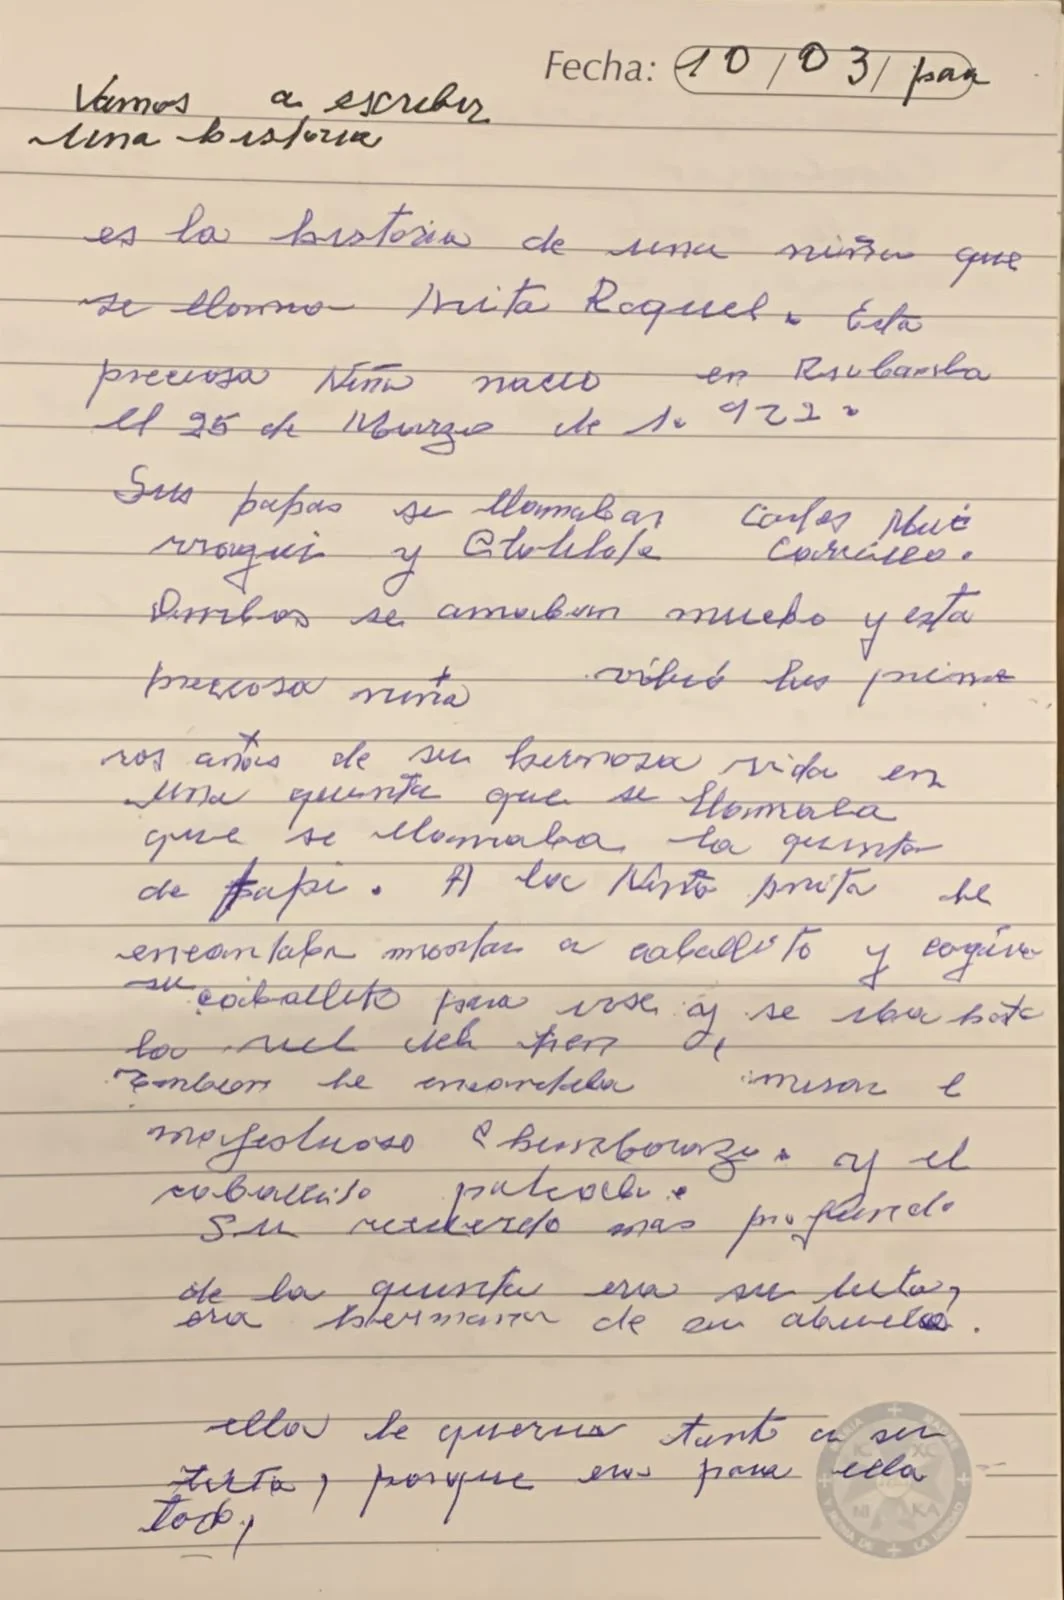 Fecha: 10/03/
Vamos a escribir
una historia
es la historia de una niña que
se llama Anita Raquel. Esta
preciosa Niña nacio en
el 25 de Marzo de 1.922.
Sus papas se llamaban Carlos
y
Ambos se amaban mucho y esta
preciosa niña vibió los prime
ros años de su hermosa vida en
una quinta que se llamaba
que se llamaba la quinta
de papi. A la Niña Anita le
encantaba montar a caballito y cogiva
su caballito para irse y se iba hasta
la riel del tren y,
Tambien le encantaba mirar e
majestuoso Chimborazo. y el
Su recuerdo mas profundo
de la quinta era su tita,
era hermana de su abuela.
ella le queria tanto a su
tita, porque era para ella
todo,
MARIA MADRE
Y REINA DE LA UNIDAD
IC XC
NI KA